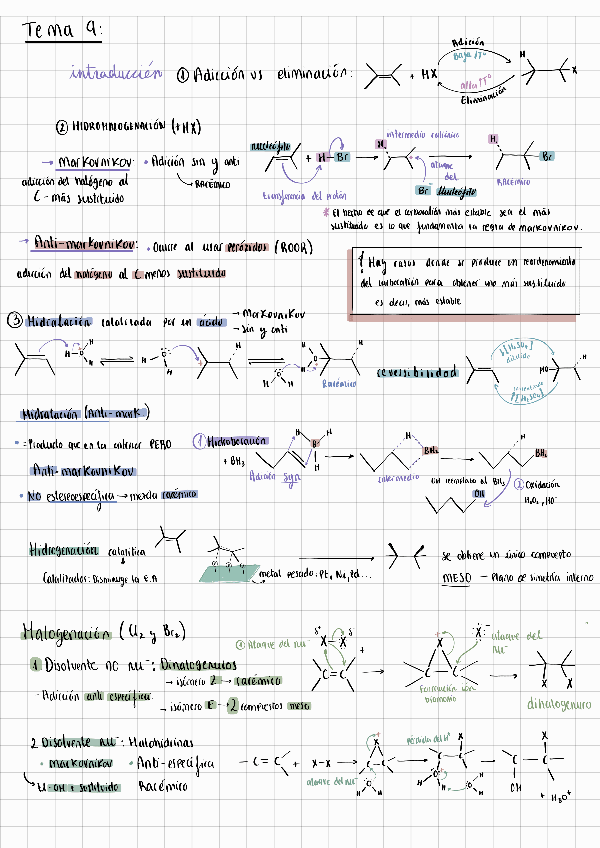 Tema 9:
introducción ① Adicción vs eliminación: + HX
Adición
Baja Tº
alta Tº
Eliminación
H
X
② HIDROHALOGENACIÓN (+HX)
→ Markovnikov: • Adición sin y anti
RACÉMICO
adicción del halógeno al
C - más sustituido
nucleófilo
+ H - Br
transferencia del protón
intermedio
H
ataque
del
Br⁻ Nucleófilo
H
Br
RACÉMICO
* El hecho de que el carbocatión más estable sea el más
sustituido es lo que fundamenta la regla de markovnikov.
→ Anti-markovnikov: • Ocurre al usar peróxidos (ROOR)
adicción del halógeno al C menos sustituido
! Hay casos donde se produce un reordenamiento
del carbocatión para obtener uno más sustituido
es decir, más estable
③ Hidratación catalizada por un ácido → Markovnikov
→ sin y anti
Racémico
reversibilidad
[H₂SO₄]
diluido
concentrado
[H₂SO₄]
HO
H
Hidratación (Anti-mark)
• = Producto que en la anterior PERO
Anti-markovnikov
• NO estereoespecífica → mezcla racémica
① Hidroboración
+ BH₃
Adición syn
H
B
H
H
H
BH₂
intermedio
H
BH₂
OH reemplaza al BH₂
② Oxidación
H₂O₂, HO⁻
OH
Hidrogenación catalítica
Catalizados: Disminuye la E.A
metal pesado: Pt, Ni, Pd...
se obtiene un único compuesto
MESO - Plano de simetría interno
Halogenación (Cl₂ y Br₂)
1 Disolvente no nu⁻: Dihalogenuros
· Adición anti específica.
→ isómero Z → racémico
→ isómero E → 2 compuestos meso
① Ataque del nu⁻
δ⁺ X - X δ⁻
C = C
+
X
C C
formación ion
bromonio
ataque del
nu⁻
C - C
X X
dihalogenuro
2 Disolvente nu⁻: Halohidrinas
• markovnikov • Anti-específica
OH + sustituido Racémico
- C = C + X-X
ataque del nu⁻
pérdida del H⁺
X
C - C
OH
+ H₃O⁺